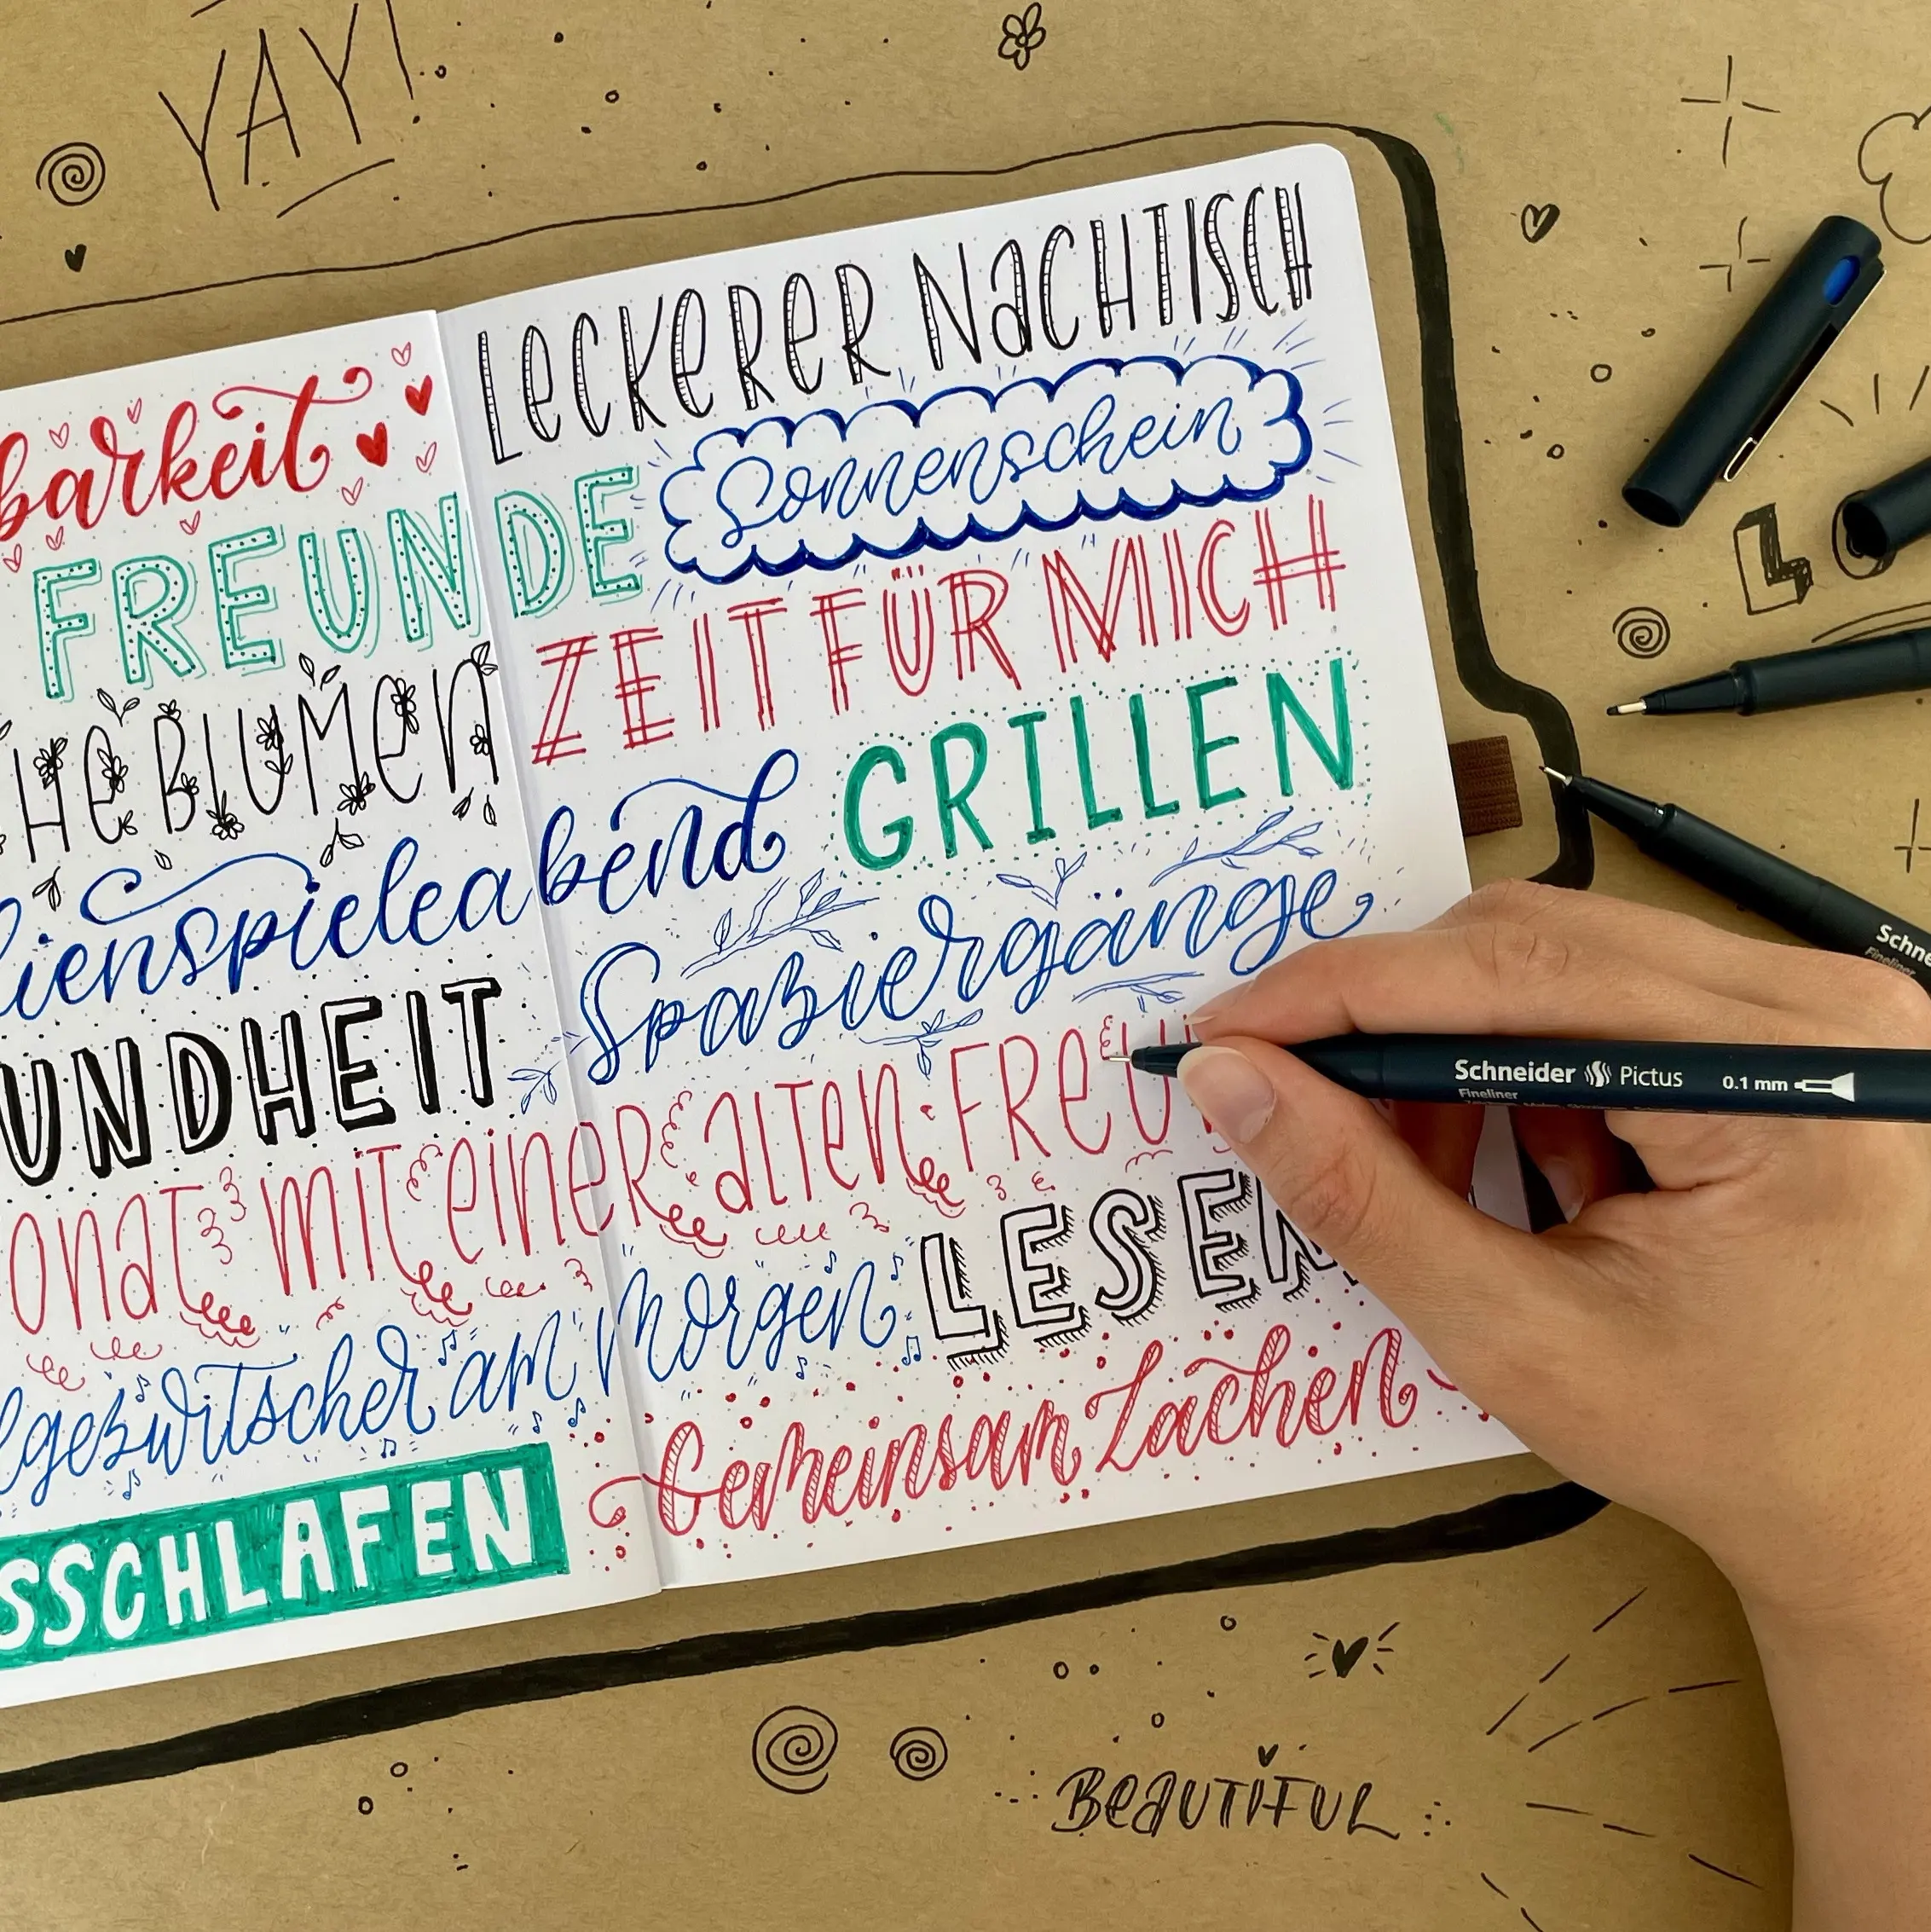 YAY!
LECKERER NACHTISCH
barkeit
Sonnenschein
FREUNDE
ZEIT FÜR MICH
HE BLUMEN
GRILLEN
lienspieleabend
Spaziergänge
UNDHEIT
onat mit einer alten Freu
LESEN
lgezwitscher am Morgen
Gemeinsam Lachen
SSCHLAFEN
LO
Schne
Fineliner
Schneider Pictus 0.1 mm
Fineliner
BEAUTIFUL